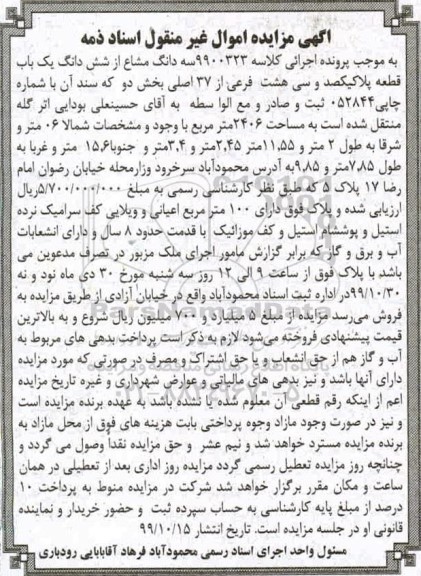 اگهی مزایده اموال غیر منقول اسناد ذمه
به موجب پرونده اجرائی کلاسه ۹۹۰۰۳۲۳سه دانگ مشاع از شش دانگ یک باب
قطعه پلاکیکصد و سی هشت فرعی از ۳۷ اصلی بخش دو که سند آن با شماره
چاپی۰۵۲۸۴۴ ثبت و صادر و مع الوا سطه به آقای حسینعلی بودایی اتر گله
منتقل شده است به مساحت ۲۴۰۶متر مربع با وجود و مشخصات شمالا ۰۶ متر و
شرقا به طول ۲ متر و ۱۱,۵۵متر ۲,۴۵متر و ۳,۴متر و جنوبا۱۵,۶ متر و غربا به
طول ۷,۸۵متر و ۹,۸۵به آدرس محمودآباد سرخرود وزارمحله خیابان رضوان امام
رضا ۱۷ پلاک ۵ که طبق نظر کارشناسی رسمی به مبلغ ۵/۷۰۰/۰۰۰/۰۰۰ریال
ارزیابی شده و پلاک فوق دارای ۱۰۰ متر مربع اعیانی و ویلایی کف سرامیک نرده
استیل و پوششام استیل و کف موزائیک با قدمت حدود ۸ سال و دارای انشعابات
آب و برق و گاز که برابر گزارش مامور اجرای ملک مزبور در تصرف مدعوین می
باشد با پلاک فوق از ساعت ۹ الی ۱۲ روز سه شنبه مورخ ۳۰ دی ماه نود و نه
۹۹/۱۰/۳۰در اداره ثبت اسناد محمودآباد واقع در خیابان آزادی از طریق مزایده به
فروش می‌رسد مزایده از مبلغ ۵میلیارد و ۷۰۰ میلیون ریال شروع و به بالاترین
قیمت پیشنهادی فروخته می‌شود لازم به ذکر است پرداخت بدهی های مربوط به
آب و گاز هم از حق انشعاب و یا حق اشتراک و مصرف در صورتی که مورد مزایده
دارای آنها باشد و نیز بدهی های مالیاتی و عوارض شهرداری و غیره تاریخ مزایده
اعم از اینکه رقم قطعی آن معلوم شده یا نشده باشد به عهده برنده مزایده است
و نیز در صورت وجود مازاد وجوه پرداختی بابت هزینه های فوق از محل مازاد به
برنده مزایده مسترد خواهد شد و نیم عشر و حق مزایده نقداً وصول می گردد و
چنانچه روز مزایده تعطیل رسمی گردد مزایده روز اداری بعد از تعطیلی در همان
ساعت و مکان مقرر برگزار خواهد شد شرکت در مزایده منوط به پرداخت ۱۰
درصد از مبلغ پایه کارشناسی به حساب سپرده ثبت و حضور خریدار و نماینده
قانونی او در جلسه مزایده است. تاریخ انتشار ۹۹/۱۰/۱۵
مسئول واحد اجرای اسناد رسمی محمودآباد فرهاد آقابابایی رودباری